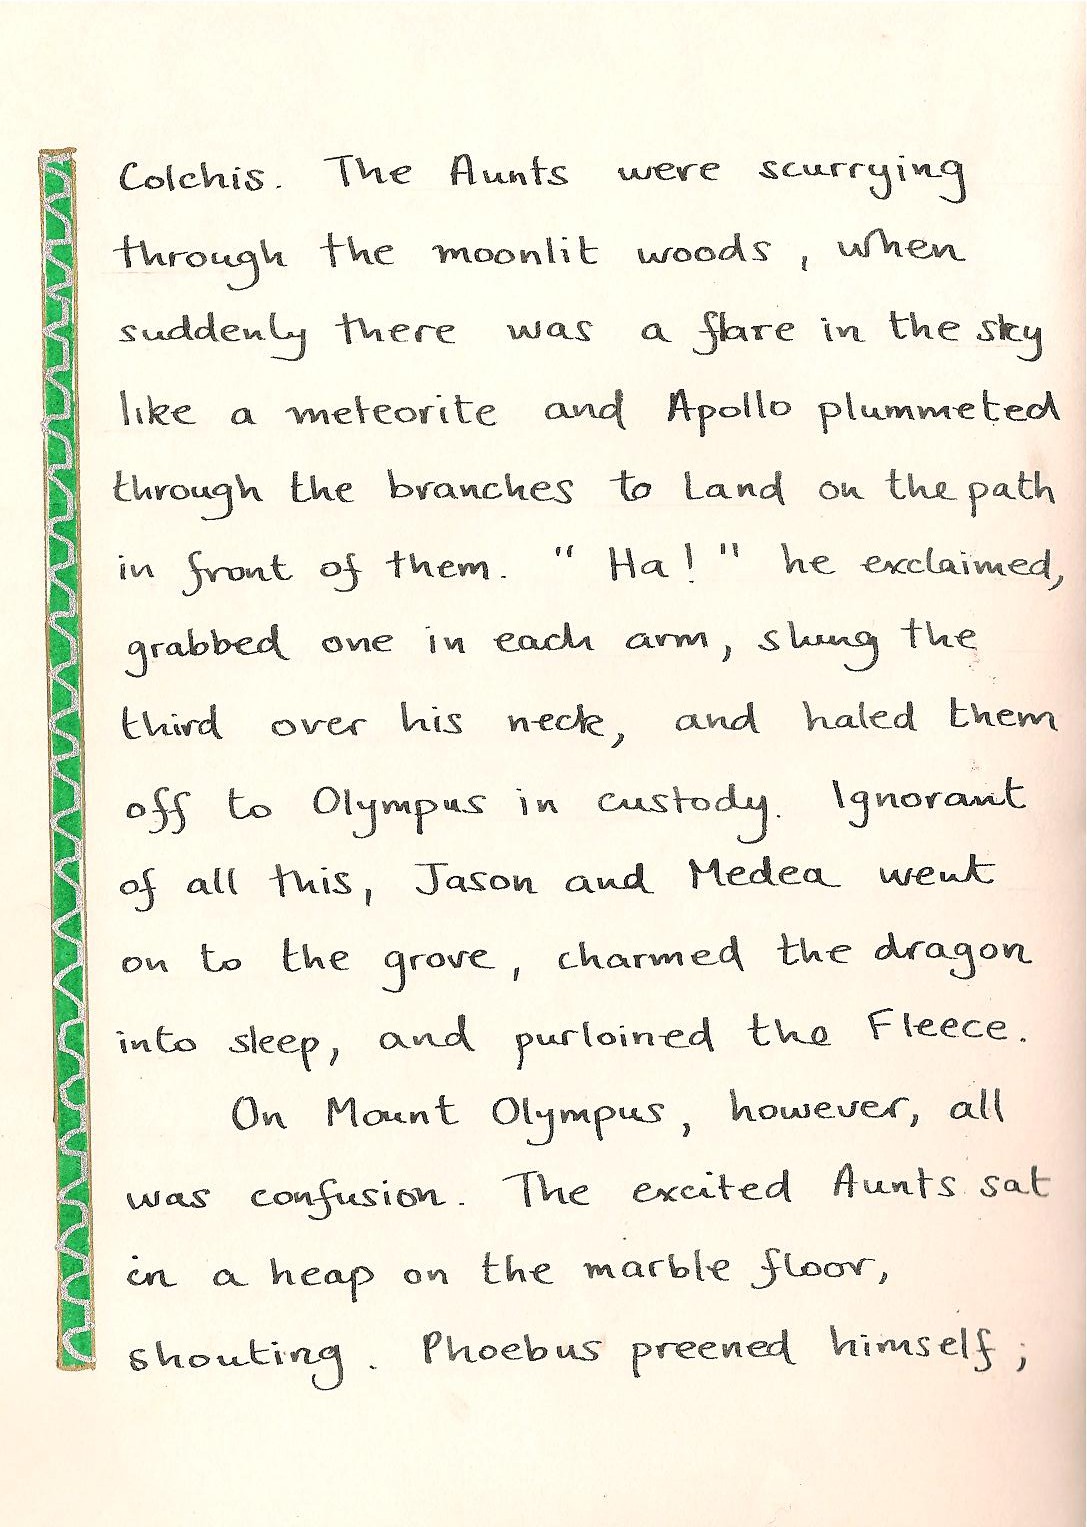 Colchis. The Aunts were scurrying
through the moonlit woods, when
suddenly there was a flare in the sky
like a meteorite and Apollo plummeted
through the branches to land on the path
in front of them. "Ha!" he exclaimed,
grabbed one in each arm, slung the
third over his neck, and haled them
off to Olympus in custody. Ignorant
of all this, Jason and Medea went
on to the grove, charmed the dragon
into sleep, and purloined the Fleece.
On Mount Olympus, however, all
was confusion. The excited Aunts sat
in a heap on the marble floor,
shouting. Phoebus preened himself;